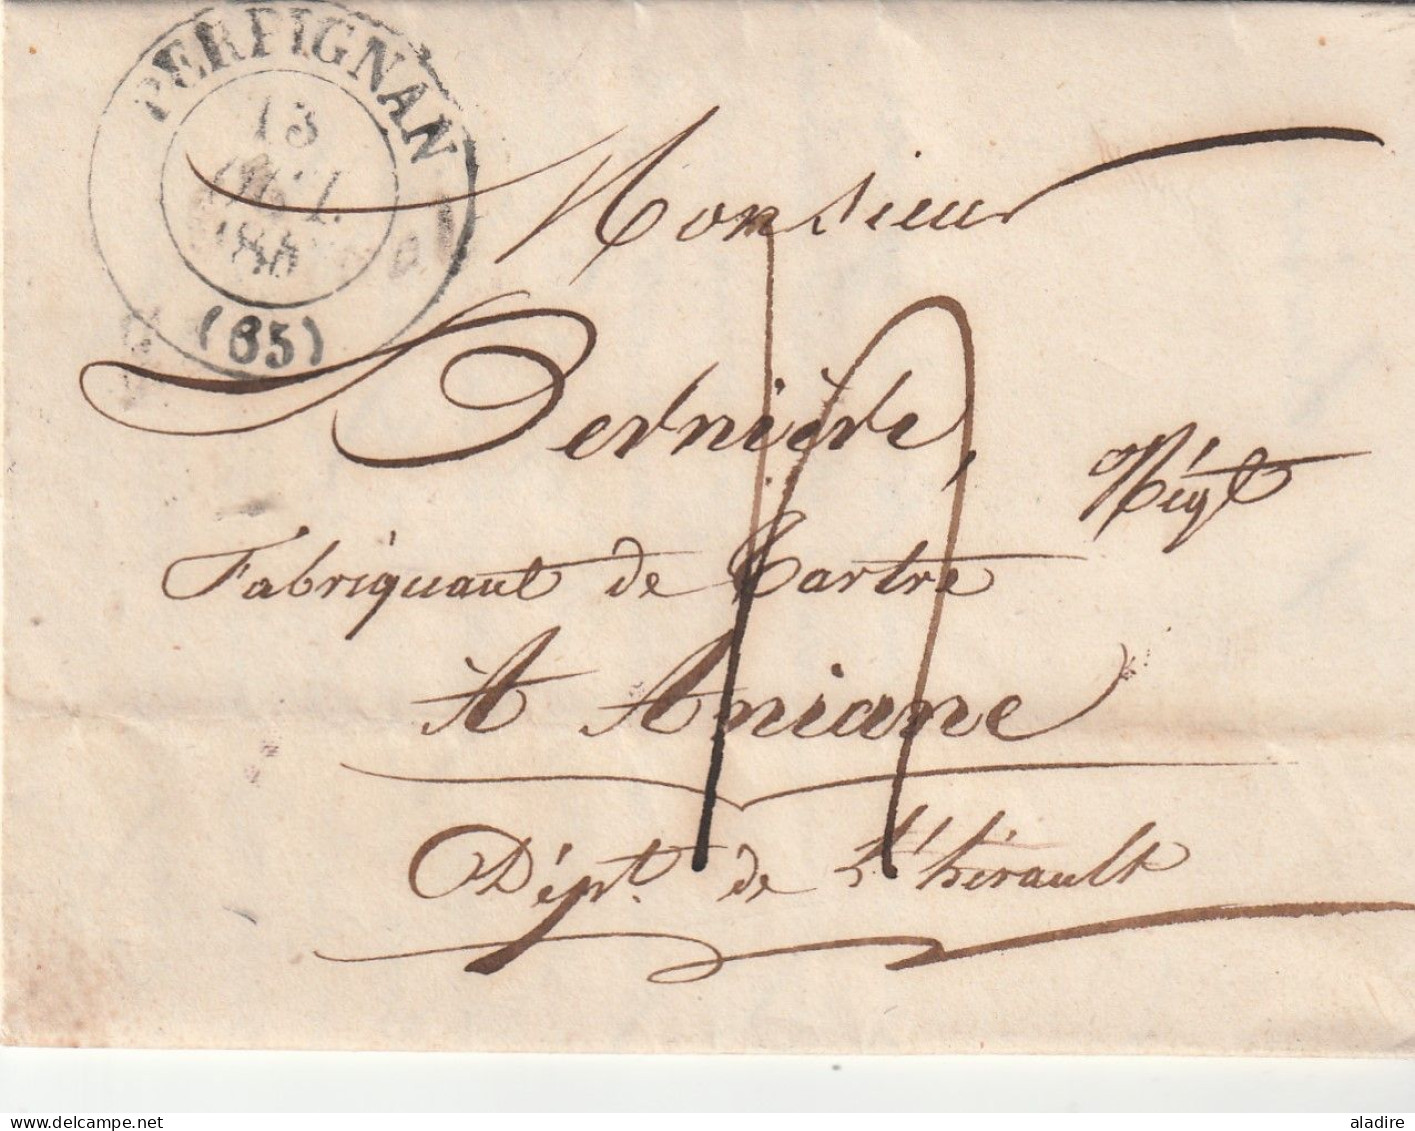 PERPIGNAN
13
(65)
Monsieur
Dernière,
Négt
Fabriquant de Tartre
A Aniane
Dépt. de l'hérault
delcampe.net
aladire